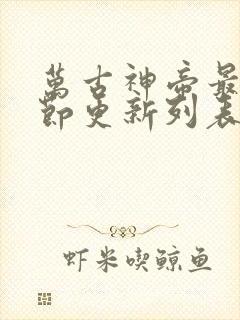 萬古神帝最
節更新列表
虾米喫鲸鱼